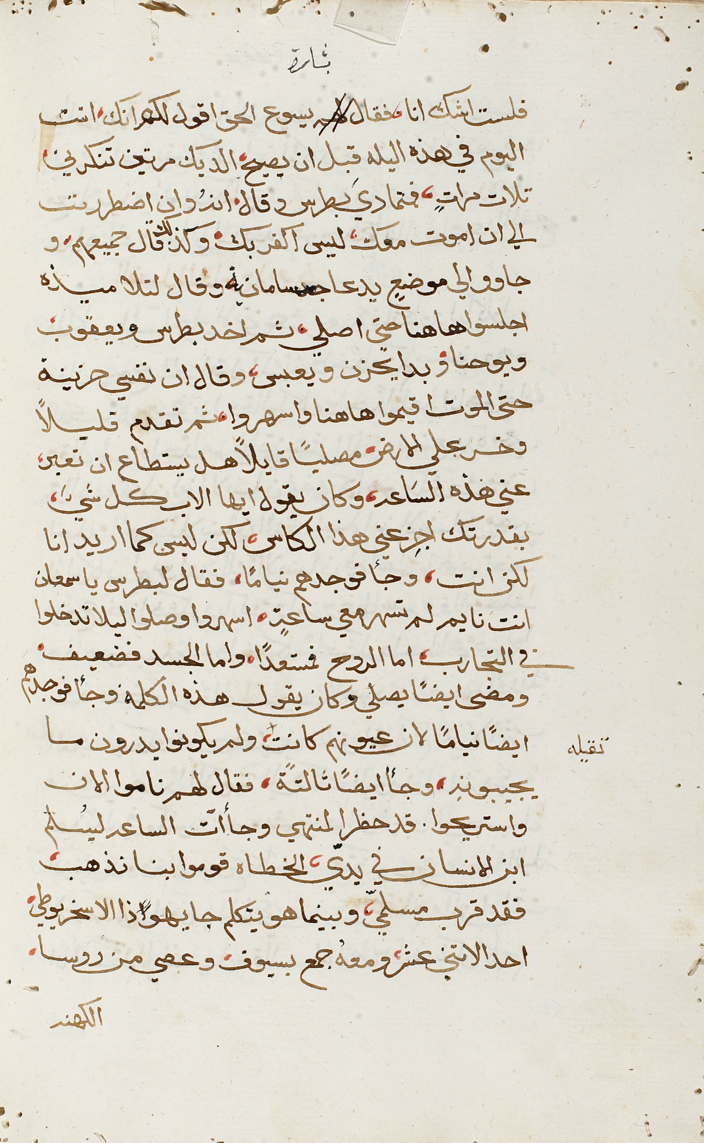 بشارة
فلست اشك انا، فقال لهم يسوع الحق اقول لكم انك، انت
اليوم في هذه اليله قبل ان يصيح، الديك مرتين تنكرني،
تلات مراتٍ، فتمادي بطرس وقال، انه وان اضطررت
الي ان اموت معك، ليس اكفر بك، وكذلك قال جميعهم، و
جاوو الي موضع يدعا جسسامانية وقال لتلاميذه
اجلسوا هاهنا حتي اصلي، ثم اخد بطرس ويعقوب،
ويوحنا، وبدا يحزن ويعبس، وقال ان نفسي حزينة
حتي الموت اقيموا هاهنا واسهروا، ثم تقدم قليلاً
وخر علي الارض، مصليًا قايلاً هل يستطاع ان تعبر،
عني هذه الساعه، وكان يقول ايها الاب كل شيً،
بقدرتك اجز عني هذا الكاس، لكن ليس كما اريد انا
لكن انت، وجأ فوجدهم نيامًا، فقال لبطرس يا سمعان
انت نايم لم تسهر معي ساعةٍ، اسهروا وصلوا ليلا تدخلوا
في التجارب، اما الروح فمستعدًا، واما الجسد فضعيف،
ومضي ايضًا يصلي وكان يقول هذه الكلمة وجأ فوجدهم
ايضًا نيامًا لان عيونهم كانت ولم يكونوا يدرون ما
تقيله
يجيبونه، وجأ ايضًا ثالتةً، فقال لهم ناموا الان
واستريحوا. قد حظر المنتهي وجأات الساعه ليسلم
ابن الانسان في يدّي، الخطاه قوموا بنا نذهب،
فقد قرب مسلمي، وبينما هو يتكلم جا يهوذا الاسخريوطي،
احد الاتني عشر، ومعه جمع بسيوف، وعصي من روسا،
الكهنه